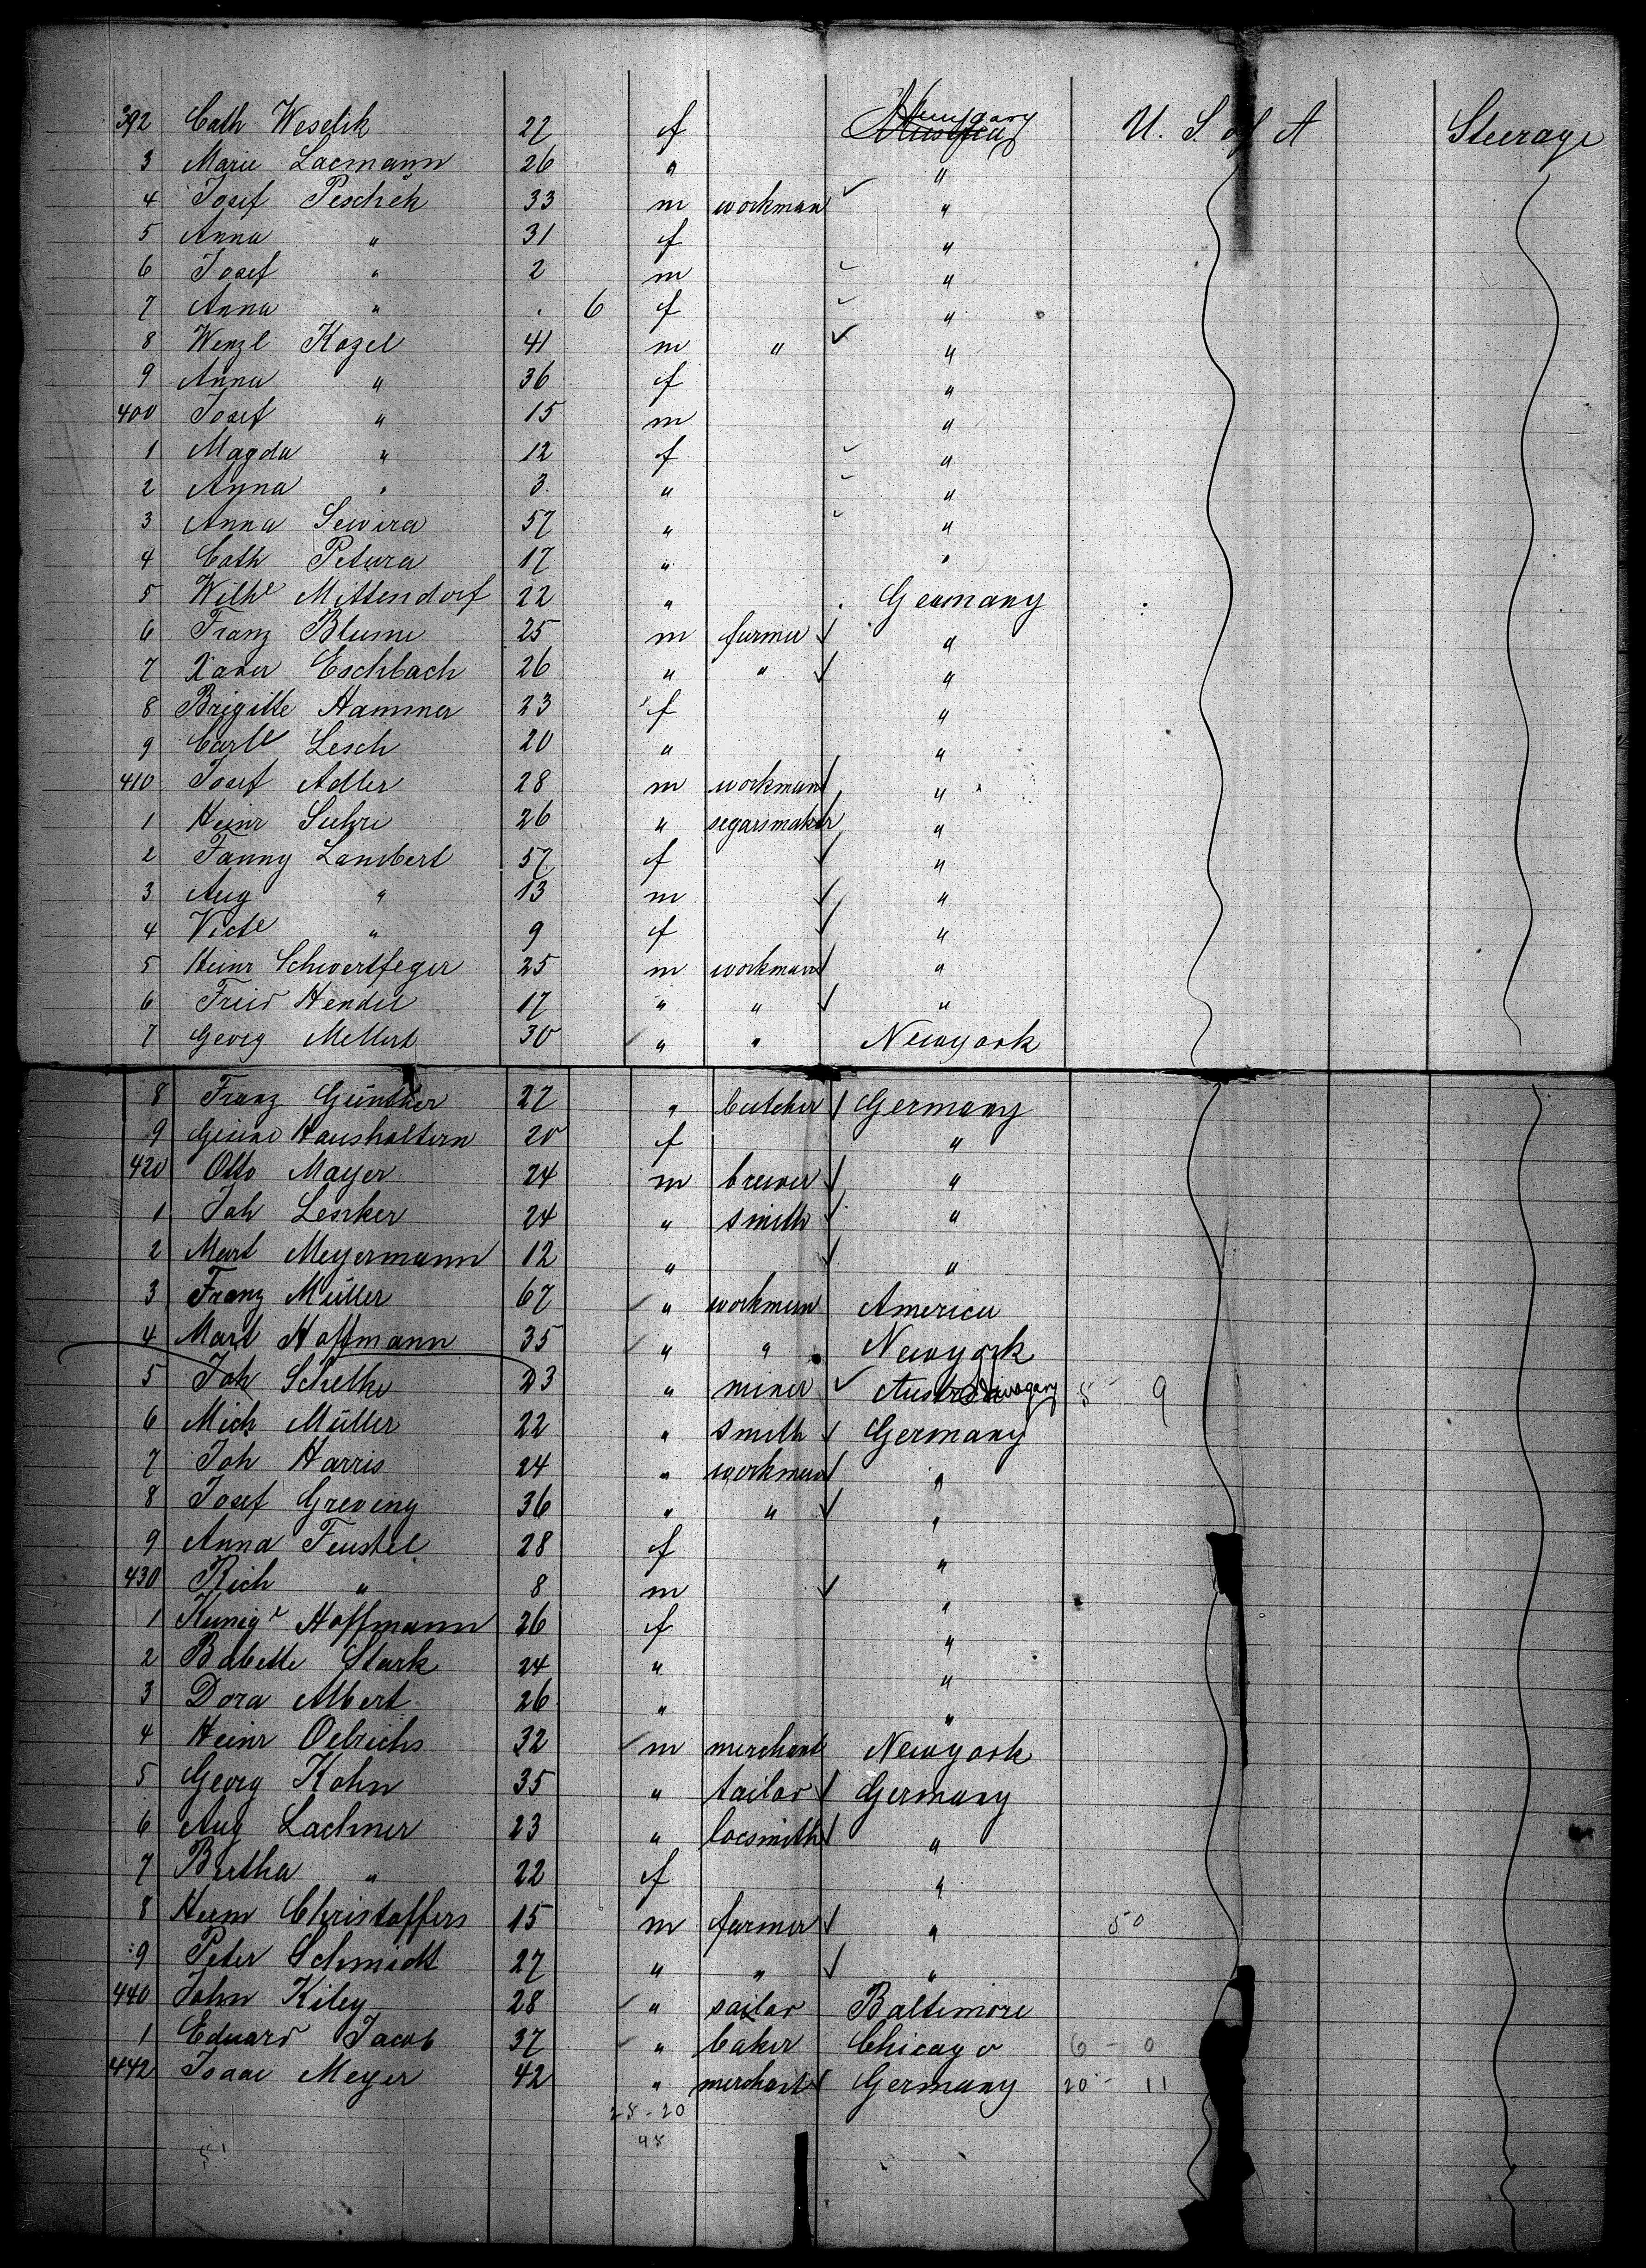 392 Cath Weselik 22 f Hungary U. S. of A Steerage
3 Marie Lacmann 26 " "
4 Josef Peschek 33 m workman "
5 Anna " 31 f "
6 Josef " 2 m "
7 Anna " . 6 f "
8 Wenzl Kozel 41 m " "
9 Anna " 36 f "
400 Josef " 15 m "
1 Magda " 12 f "
2 Anna " 3 " "
3 Anna Sewira 57 " "
4 Cath Petura 17 " "
5 Wilhe Mittendorf 22 " Germany
6 Franz Blume 25 m farmer "
7 Xaver Eschbach 26 " " "
8 Brigitte Hammer 23 f "
9 Carle Lesch 20 " "
410 Josef Adler 28 m workman "
1 Heinr Suhre 26 " segarsmaker "
2 Fanny Lambert 57 f "
3 Aug " 13 m "
4 Victe " 9 f "
5 Heinr Schwertfeger 25 m workman "
6 Fried Hendel 17 " " "
7 Georg Mellert 30 " " Newyork
8 Franz Günther 27 " butcher Germany
9 Gesine Haushaltern 20 f "
420 Otto Mayer 24 m brewer "
1 Joh Lenker 24 " smith "
2 Mart Meyermann 12 " "
3 Franz Müller 67 " workman America
4 Mart Hoffmann 35 " " Newyork
5 Joh Schelke 23 " miner Austria 9
6 Mich Müller 22 " smith Germany
7 Joh Harris 24 " workman "
8 Josef Greving 36 " " "
9 Anna Feustel 28 f "
430 Rich " 8 m "
1 Kunige Hoffmann 26 f "
2 Babette Stark 24 " "
3 Dora Albert 26 " "
4 Heinr Oelrichs 32 m merchant Newyork
5 Georg Kohn 35 " tailor Germany
6 Aug Lachner 23 " locsmith "
7 Bertha " 22 f "
8 Herm Christoffers 15 m farmer " 50
9 Peter Schmidt 27 " " "
440 John Kiley 28 " sailor Baltimore
1 Eduard Jacob 37 " baker Chicago 6 - 0
442 Isaac Meyer 42 " merchant Germany 20 - 11
28-20
48